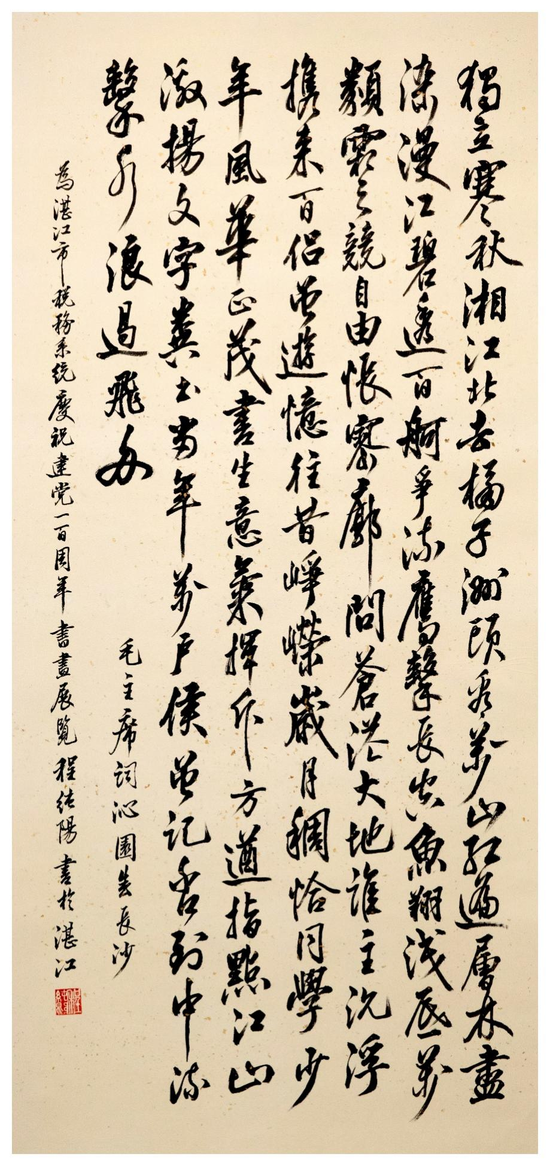 獨立寒秋湘江北去橘子洲頭看萬山紅遍層林盡
染漫江碧透百舸爭流鷹擊長空魚翔淺底萬
類霜天競自由悵寥廓問蒼茫大地誰主沉浮
携來百侶曾遊憶往昔崢嶸歲月稠恰同學少
年風華正茂書生意氣揮斥方遒指點江山
激揚文字糞土當年萬戶侯曾記否到中流
擊水浪遏飛舟
毛主席詞沁園春長沙
為湛江市稅務系統慶祝建党一百周年書畫展覽程陽書於湛江